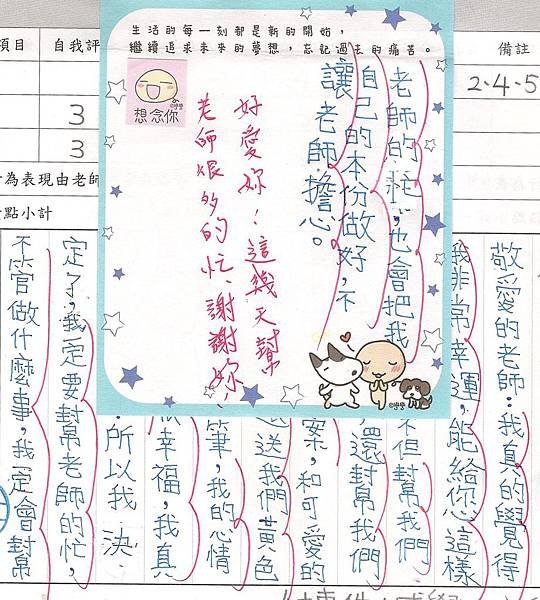 生活的每一刻都是新的開始，
繼續追求未來的夢想，忘記過去的痛苦。
老師的忙，也會把我
自己的本份做好，不
讓老師擔心。
好愛妳！這幾天幫
老師很多的忙、謝謝妳、
想念你
項目
自我評
備註
2、4、5
3
3
為表現由老師
點小計
敬愛的老師：我真的覺得
我非常幸運，能給您這樣
不但封幫我們
還封幫我們
案，和可愛的
送我們黃色
筆，我的心情
幸福，我真
所以我決
定了，我一定要封幫老師的忙，
不管做什麼事，我一定會封幫